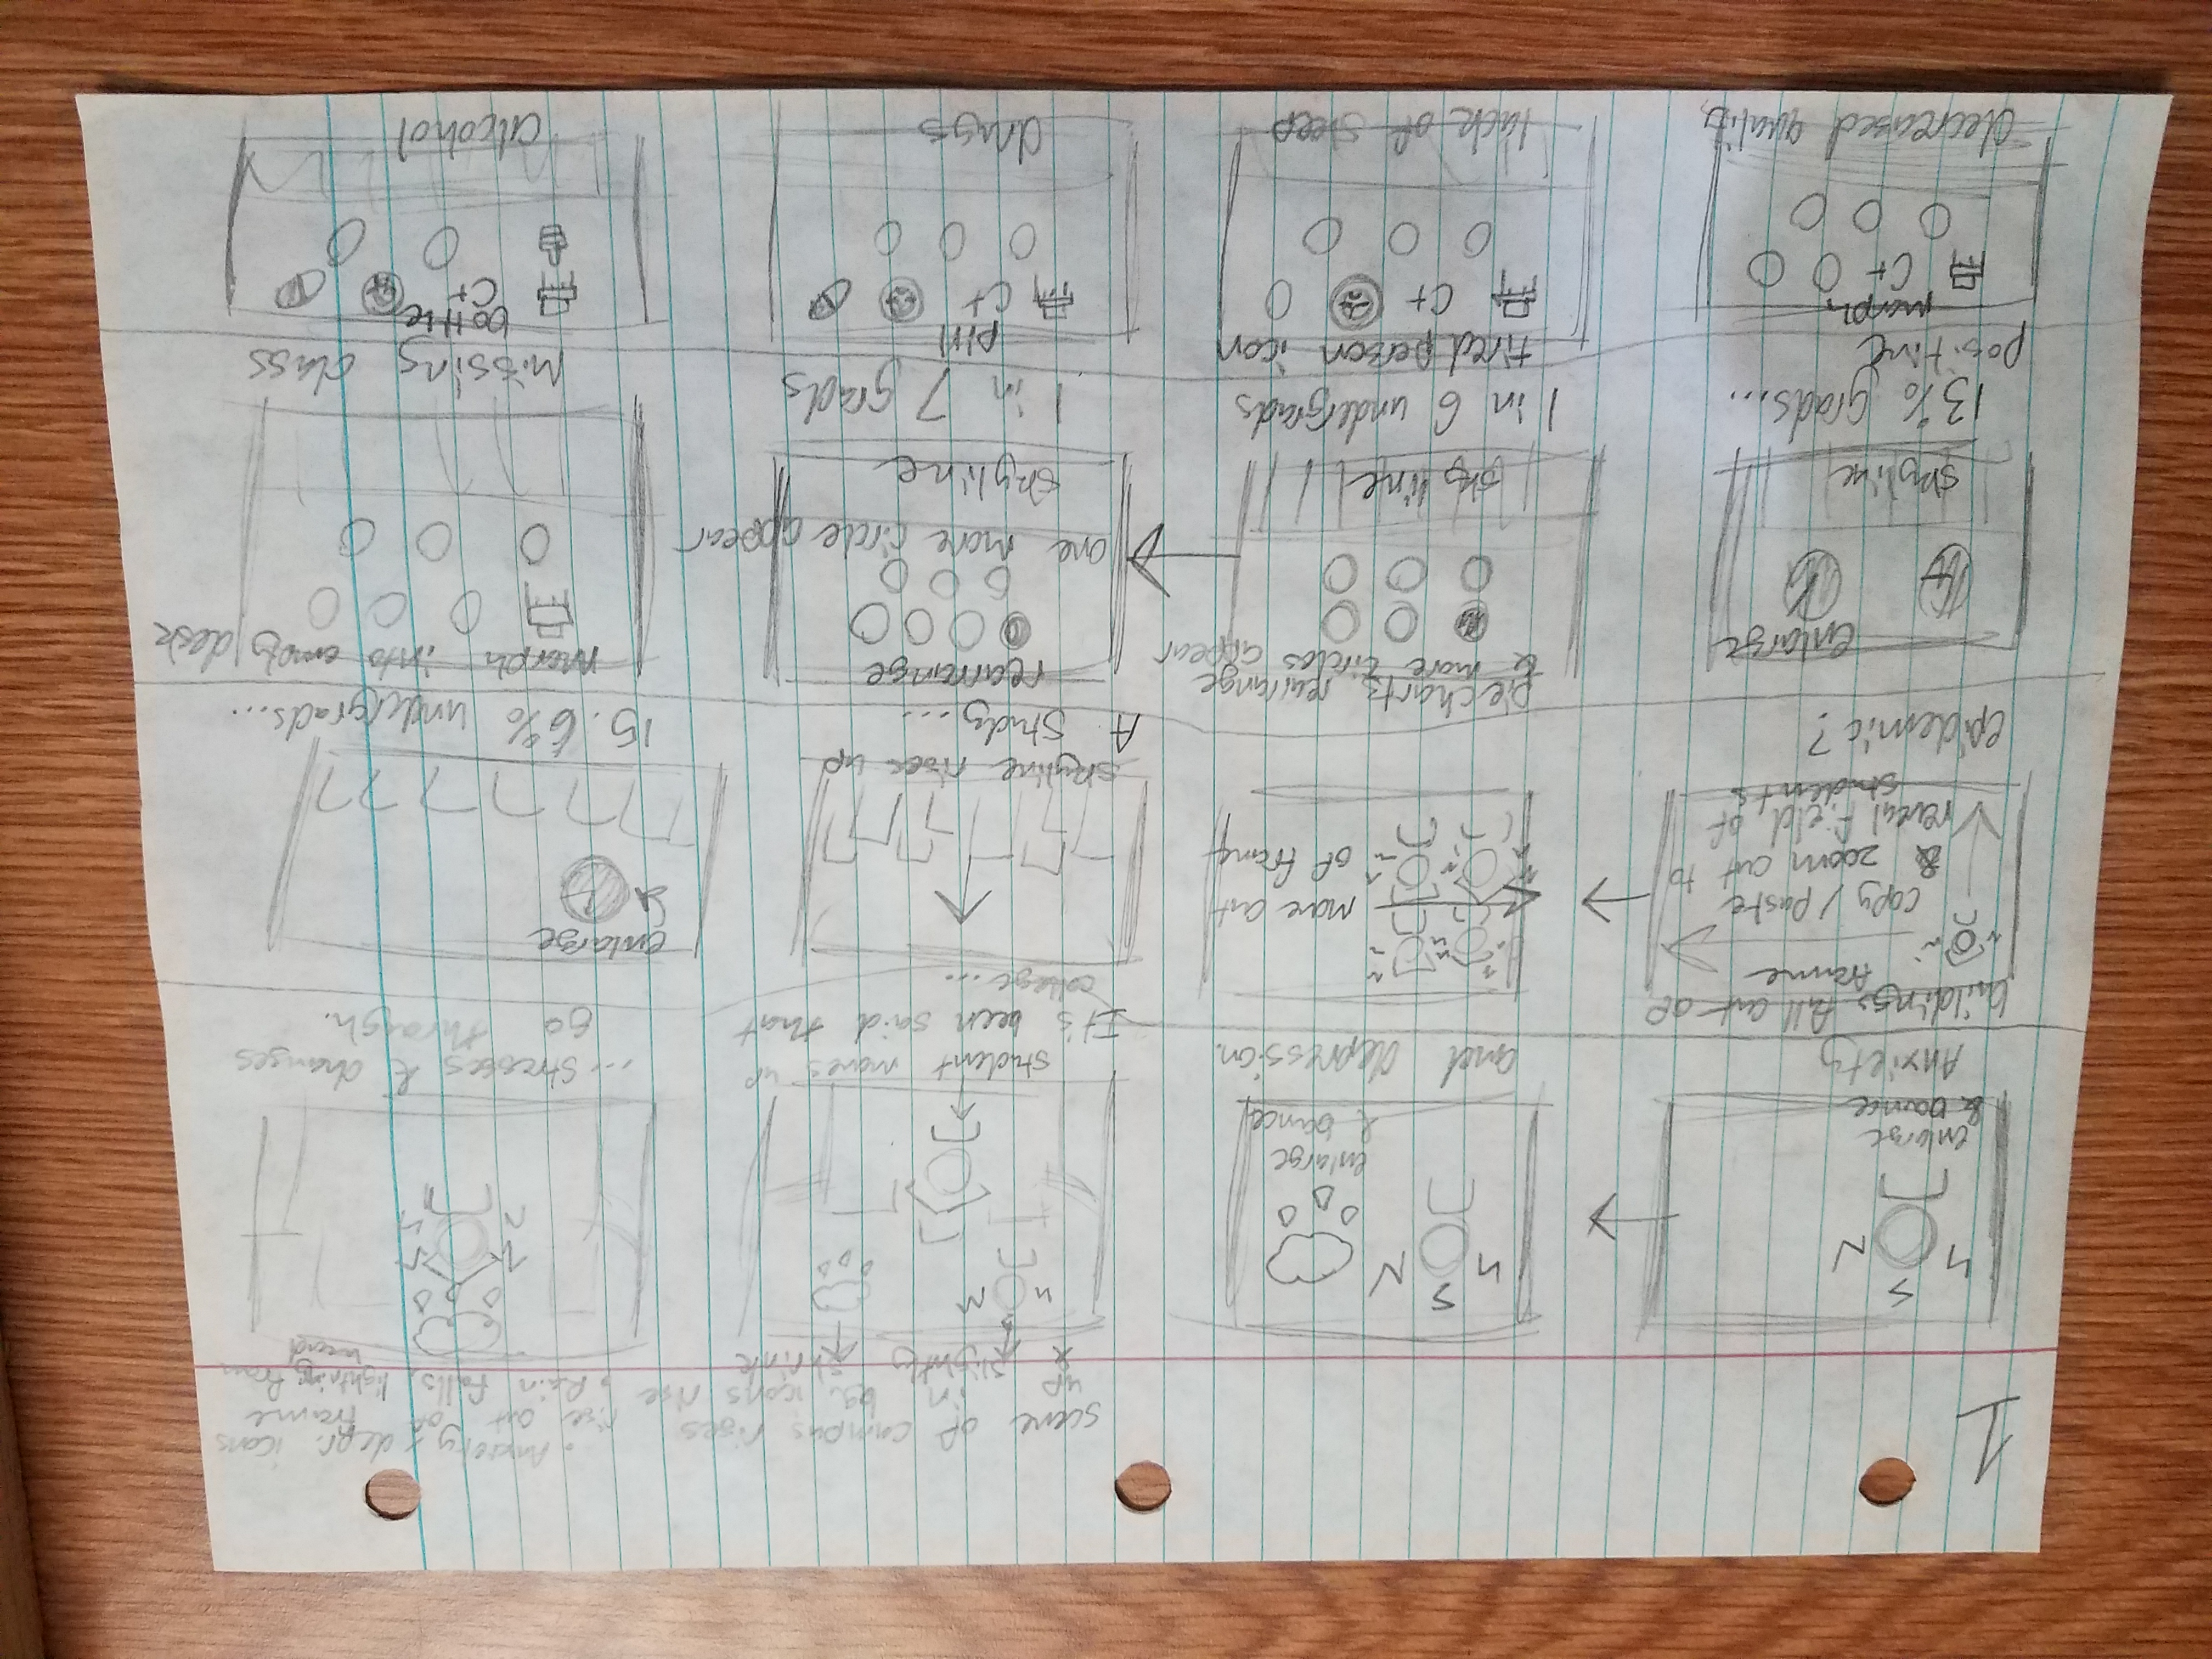 1
scene of campus rises
up in bg. icons rise
& slightly shrink
• Anxiety/depr. icons
rise out of frame
• Rain falls, lightning from
head
enlarge
& bounce
Anxiety
enlarge
& bounce
and depression.
student moves up
It's been said that
college...
...stresses & changes
go through.
buildings fall out of
frame
copy/paste
& zoom out to
reveal field of
students
epidemic?
move out
of frame
skyline rises up
A study...
enlarge
15.6% undergrads...
enlarge
skyline
13% grads...
positive
pie charts rearrange
& more circles appear
skyline
1 in 6 undergrads
rearrange
one more circle appear
skyline
1 in 7 grads
morph into empty desk
Missing class
morph
C+
decreased quality
tired person icon
C+
lack of sleep
pill
C+
drugs
bottle
C+
alcohol